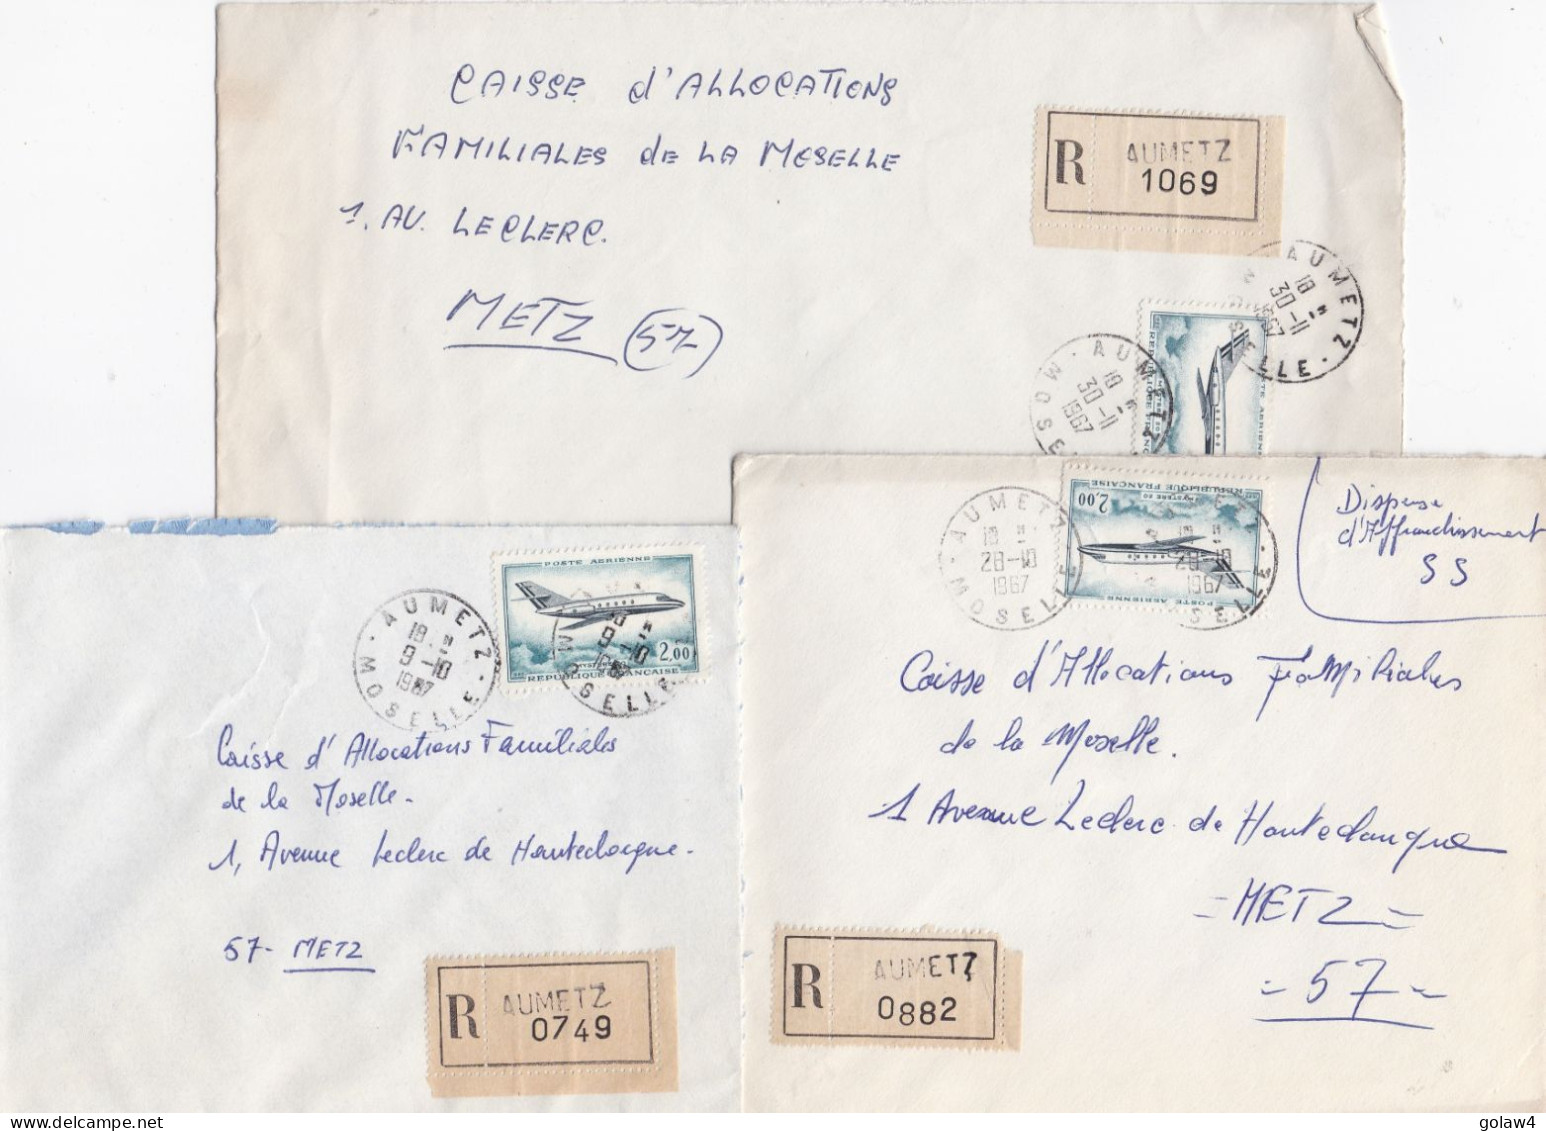 CAISSE d'ALLOCATIONS
FAMILIALES de LA MOSELLE
1. AV. LECLERC.
METZ (57)
R AUMETZ
1069
AUMETZ
18 H
30-11
1967
MOSELLE
AUMETZ
18 H
30-11
1967
MOSELLE
POSTE AERIENNE
MYSTERE 20
REPUBLIQUE FRANCAISE
AUMETZ
18 H
9-10
1967
MOSELLE
POSTE AERIENNE
2,00
MYSTERE 20
REPUBLIQUE FRANÇAISE
Caisse d'Allocations Familiales
de la Moselle.
1, Avenue Leclerc de Hauteclocque.
57- METZ
R AUMETZ
0749
AUMETZ
18 H
28-10
1967
MOSELLE
REPUBLIQUE FRANÇAISE
2,00
MYSTERE 20
POSTE AERIENNE
28-10
1967
Dispense
d'Affranchissement
SS
Caisse d'Allocations Familiales
de la Moselle.
1 Avenue Leclerc de Hauteclocque
=METZ=
=57=
R AUMETZ
0882
golaw4